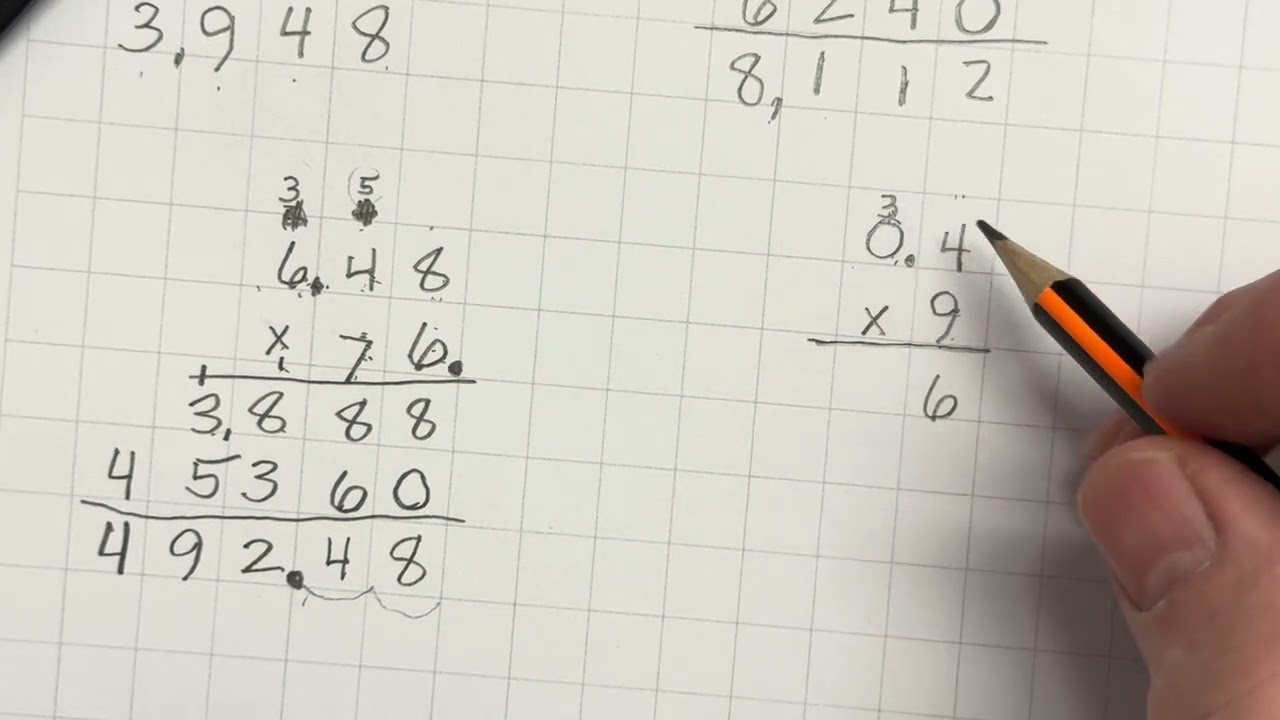 3,948
6 2 4 0
8,112
3 5
6.48
x 76.
3,888
45360
492.48
3
0.4
x 9
6